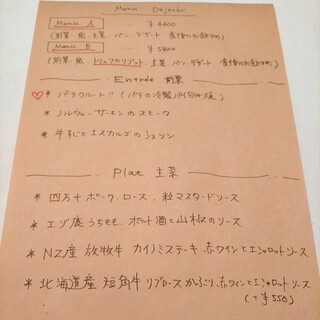 Menu Dejeuner
Menu A .... ¥4400
(前菜 魚 主菜 パン デザート 食後のお飲物)
Menu B .... ¥5800
(前菜 魚 トリュフのリゾット 主菜 パン デザート 食後のお飲物)
Entrée 前菜
♡* パテクルート!! (パテの冷製パイ包み焼)
* ノルウェーサーモンのスモーク
* 牛すじとエスカルゴの
Plat 主菜
* 四万十ポーク.ロース. 粒マスタードソース
* エゾ鹿うちもも. ポルト酒と山椒のソース
* NZ産 放牧牛 カイノミステーキ.赤ワインとエシャロットソース
* 北海道産 短角牛 リブロースかぶり.赤ワインとエシャロットソース
(+¥550)